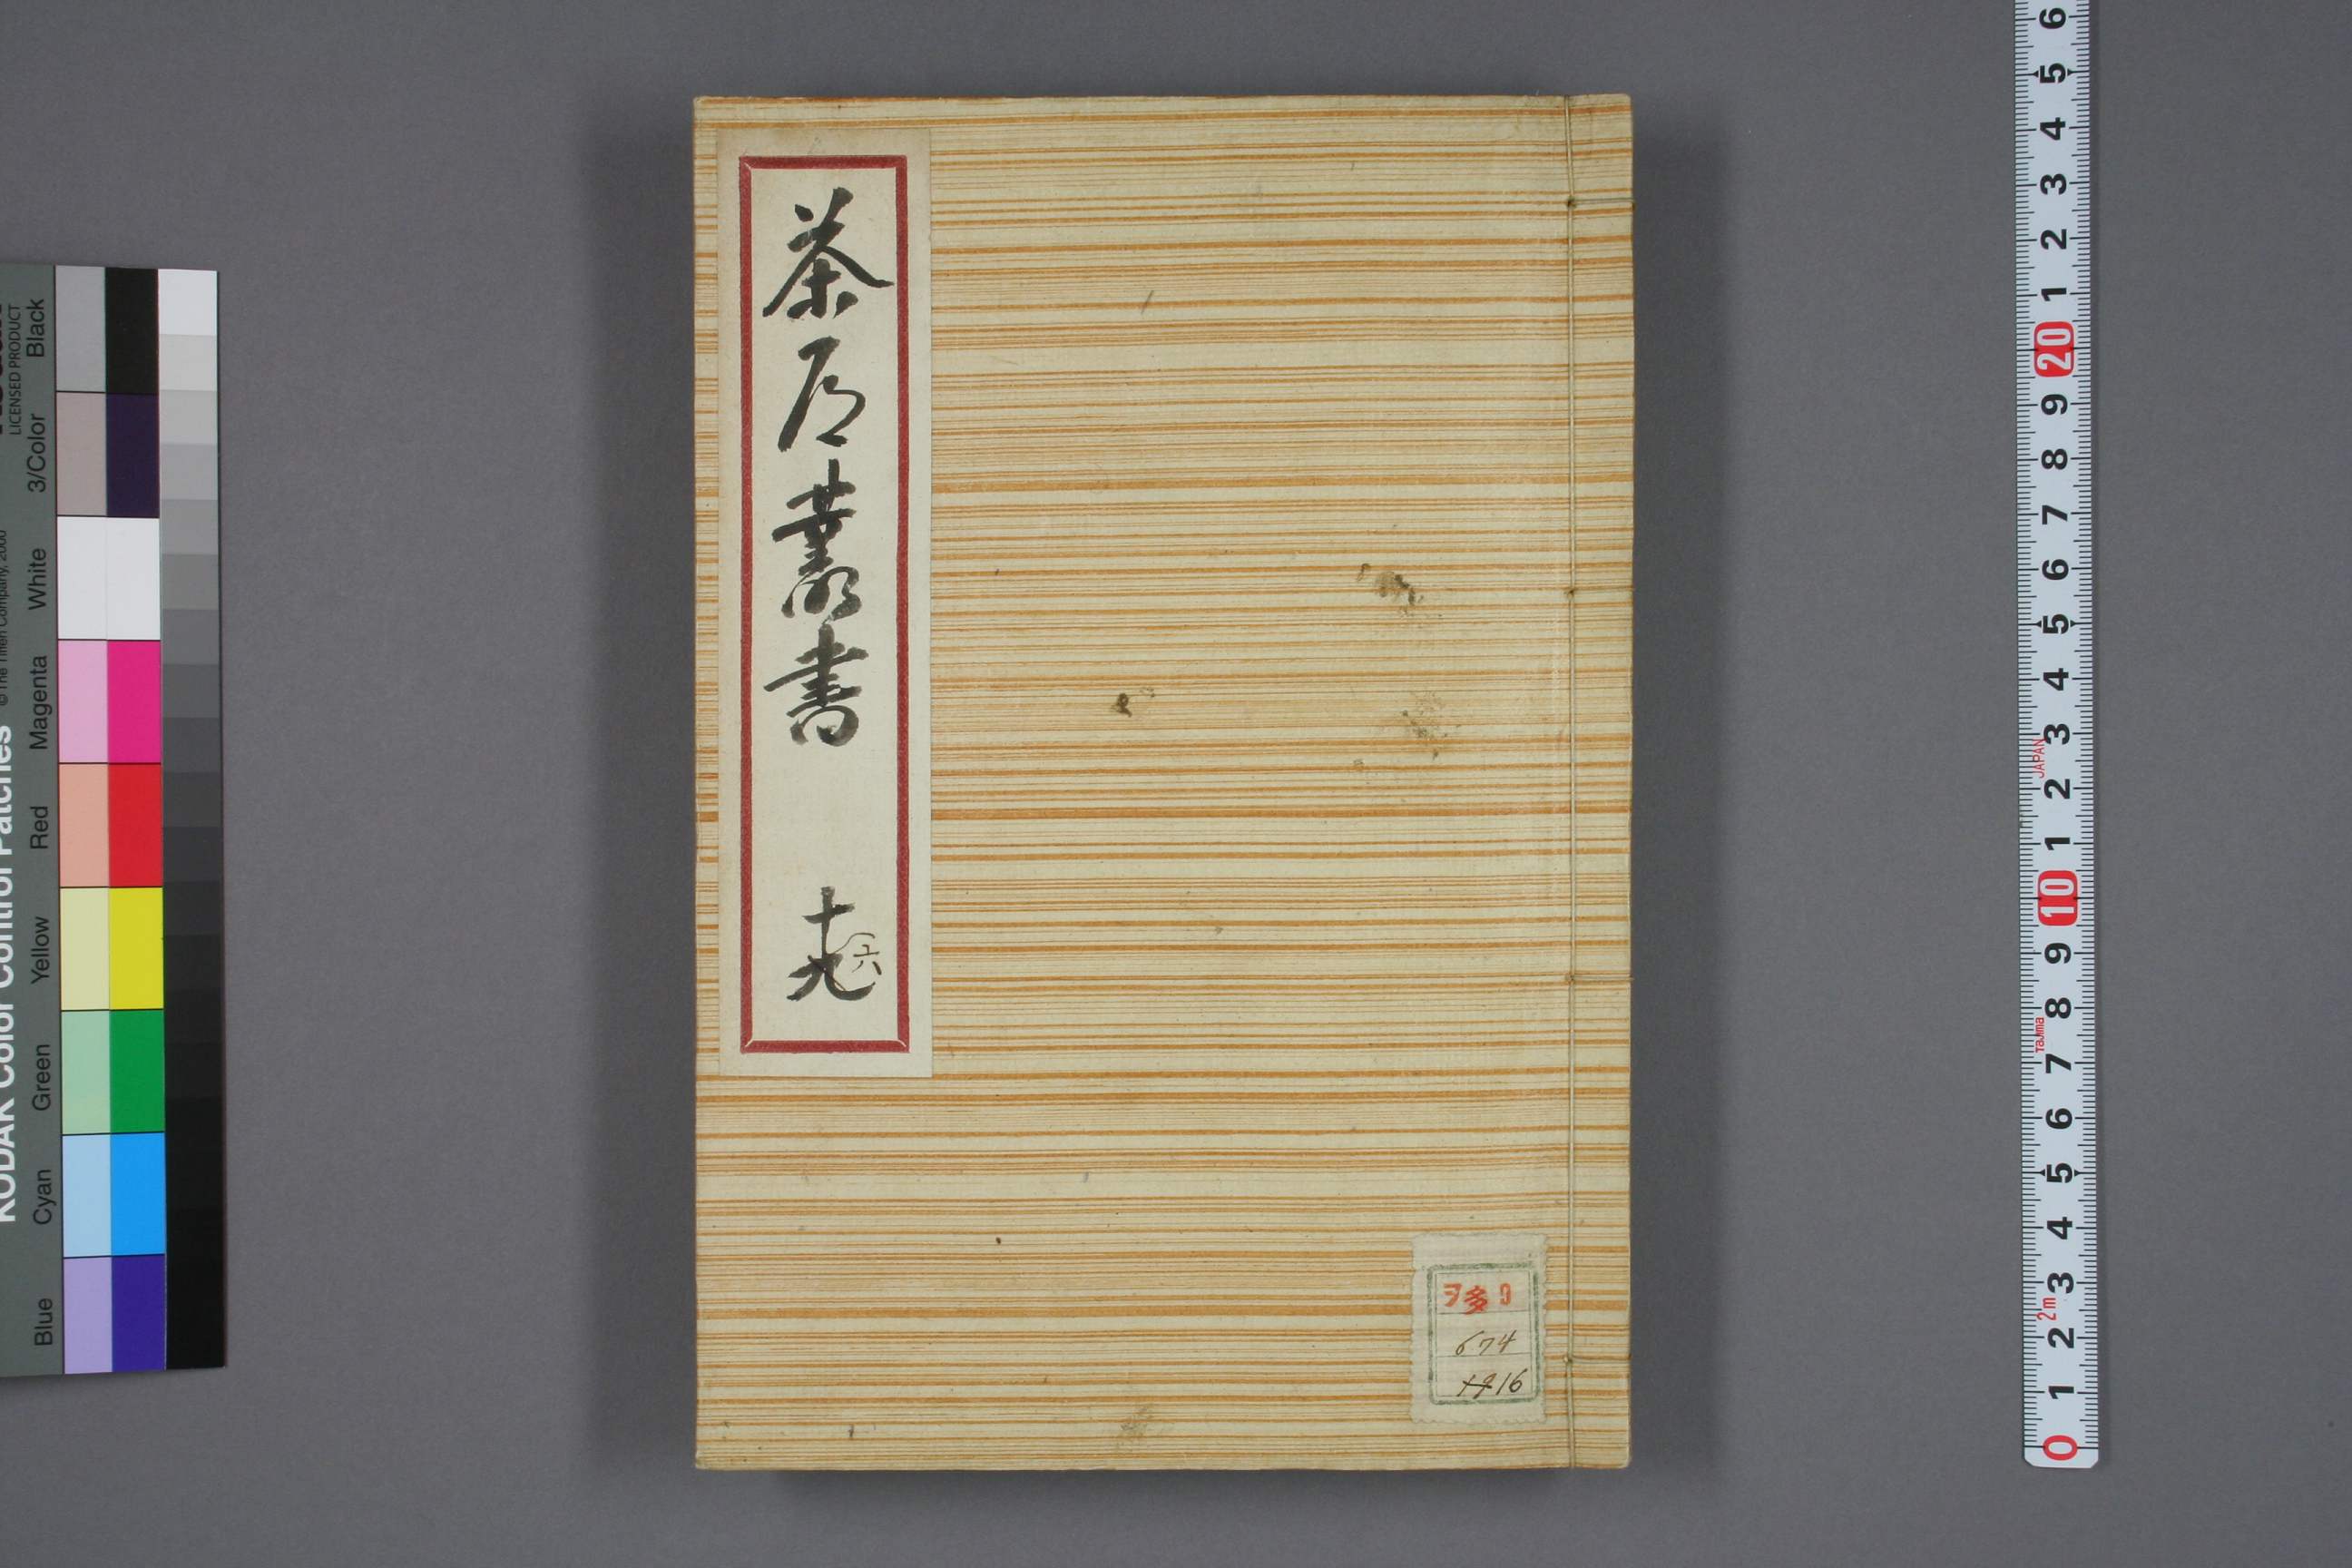 茶道叢書
十九
六
ヲ多9
674
1916
KODAK Color Control Patches
LICENSED PRODUCT
Black
3/Color
White
Magenta
Red
Yellow
Green
Cyan
Blue
6
5
4
3
2
1
20
9
8
7
6
5
4
3
JAPAN
2
1
10
9
8
Tajima
7
6
5
4
3
2m
2
1
0